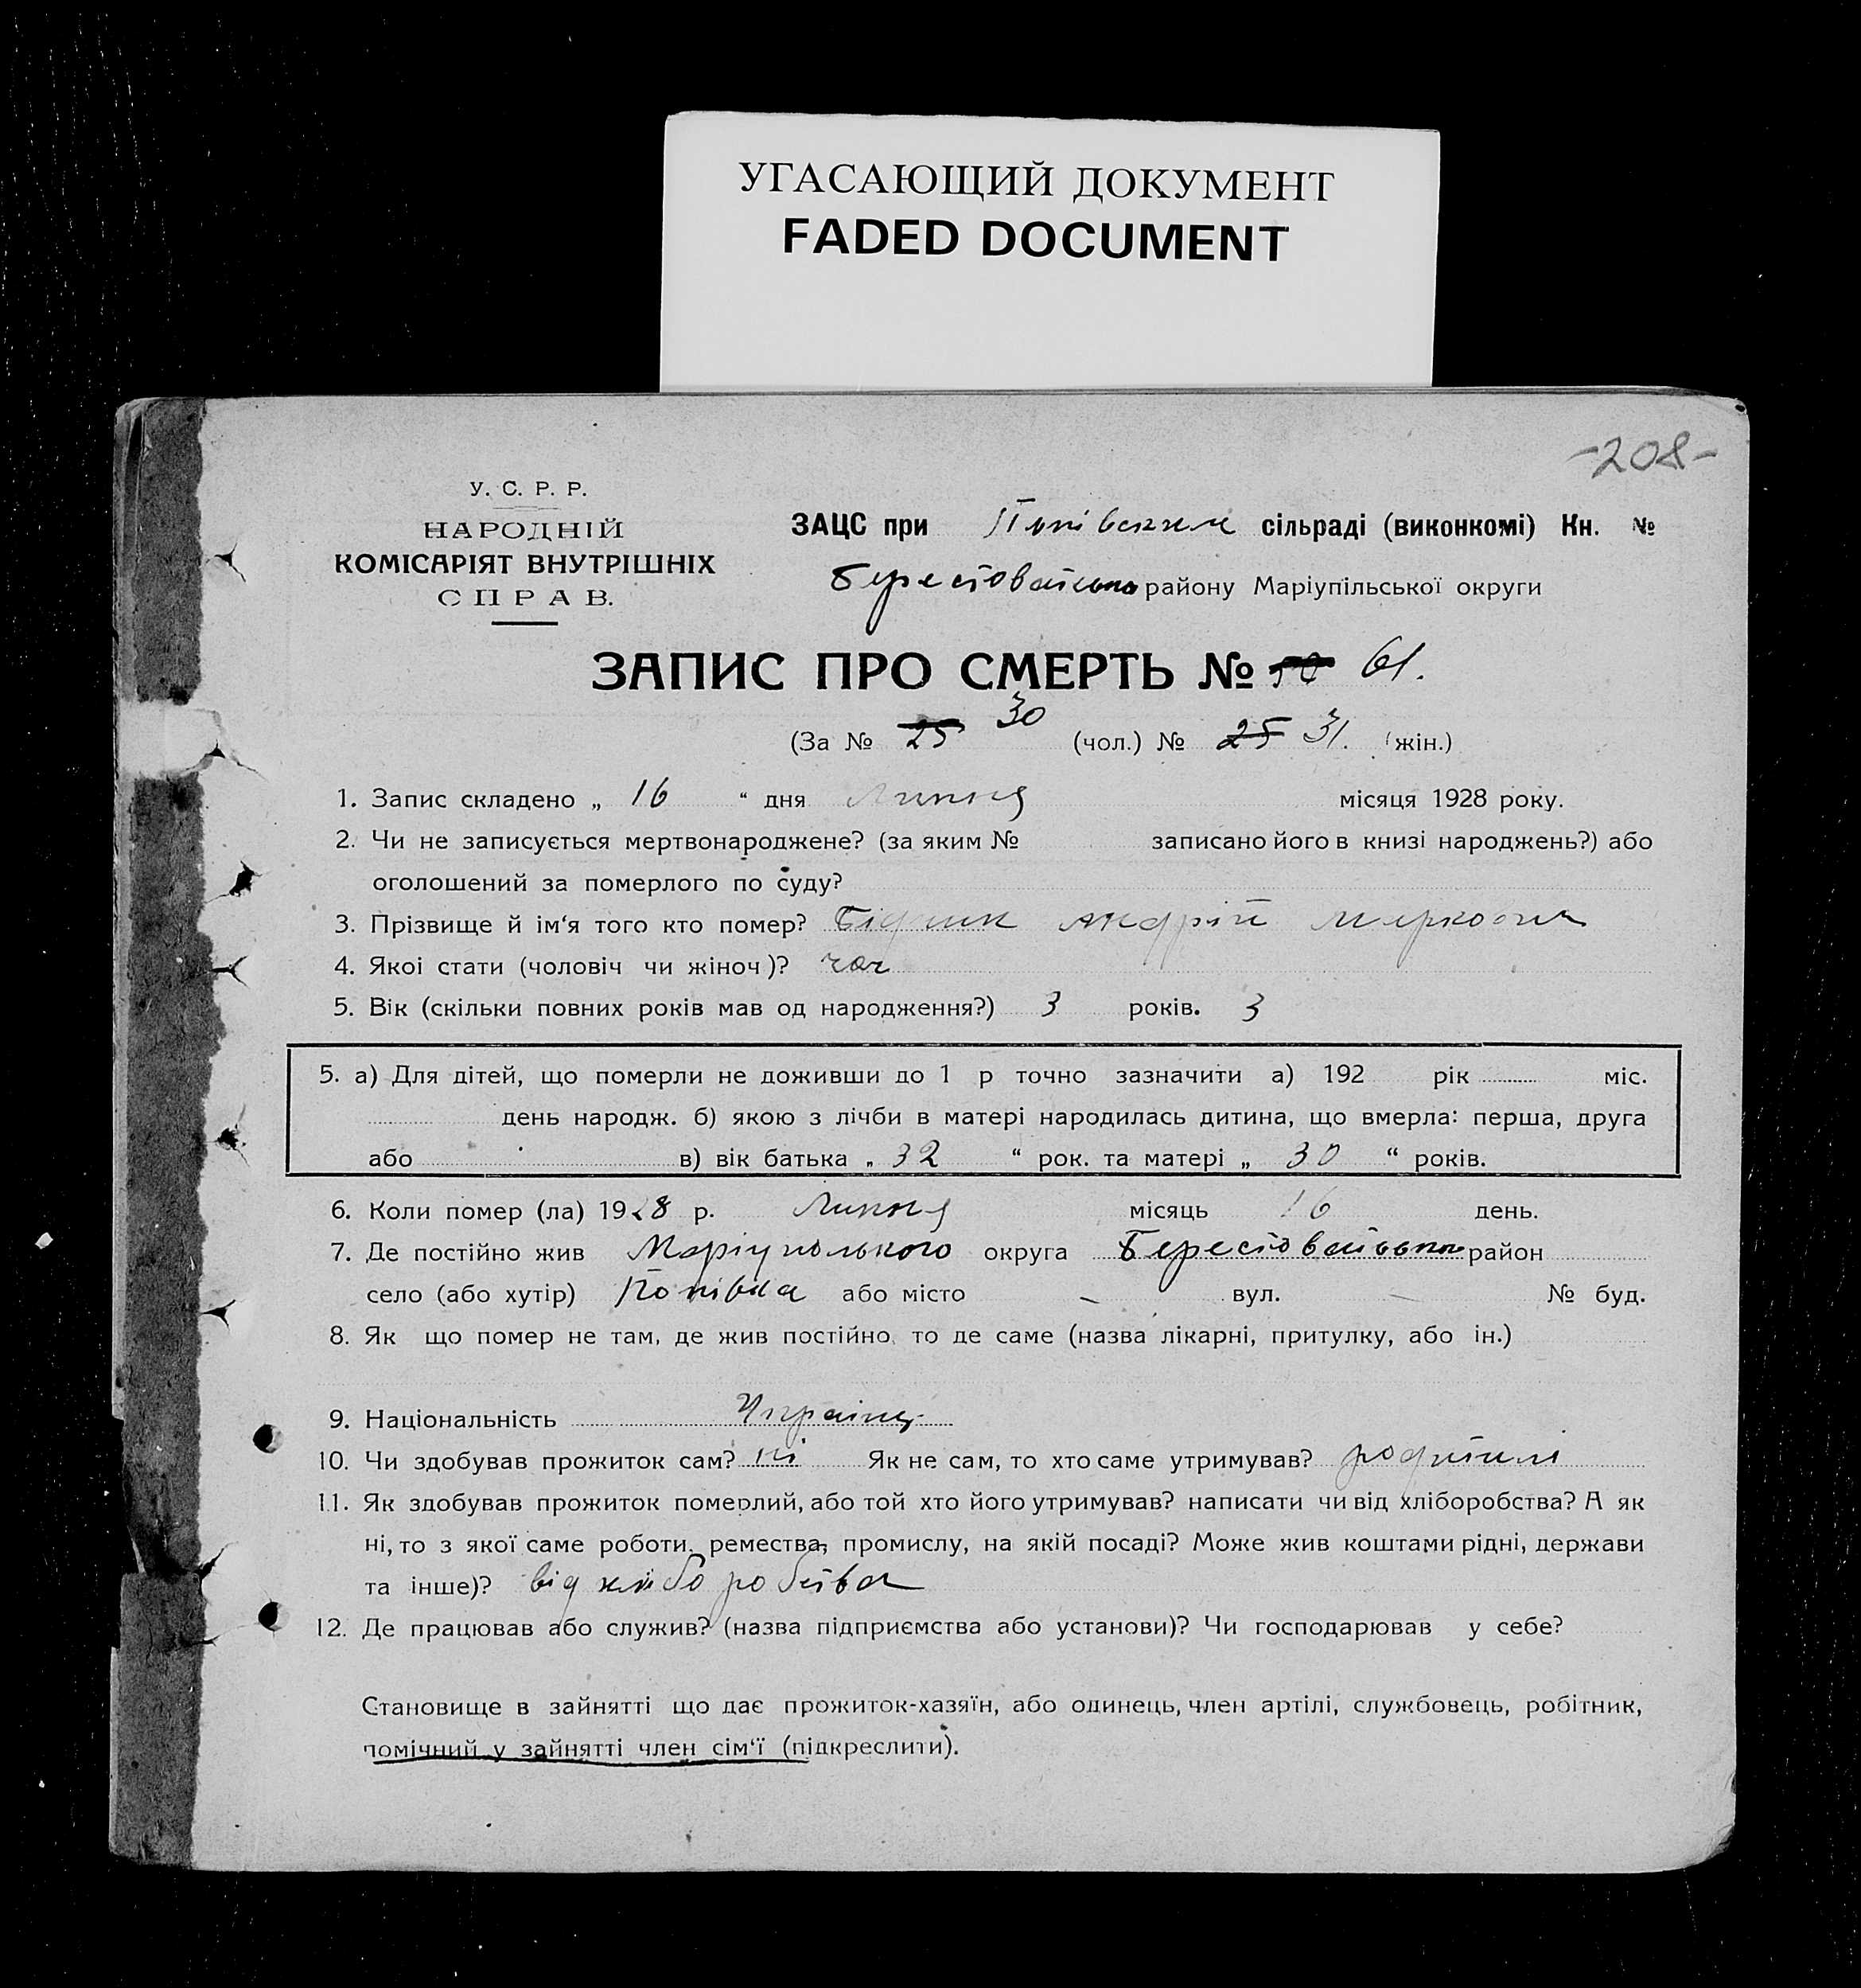 УГАСАЮЩИЙ ДОКУМЕНТ
FADED DOCUMENT
-208-
У. С. Р. Р.
НАРОДНІЙ
КОМІСАРІЯТ ВНУТРІШНІХ
СПРАВ.
ЗАЦС при сільраді (виконкомі) Кн. №
району Маріупільської округи
ЗАПИС ПРО СМЕРТЬ № 61.
(За № 25 30 (чол.) № 25 31. (жін.)
1. Запис складено „ 16 “ дня Липня місяця 1928 року.
2. Чи не записується мертвонароджене? (за яким № записано його в книзі народжень?) або
оголошений за померлого по суду?
3. Прізвище й ім‘я того кто помер? Андрій Маркович
4. Якоі стати (чоловіч чи жіноч)? чол
5. Вік (скільки повних років мав од народження?) 3 років. 3
5. а) Для дітей, що померли не доживши до 1 р точно зазначити а) 192 рік міс.
день народж. б) якою з лічби в матері народилась дитина, що вмерла: перша, друга
або в) вік батька „ 32 “ рок. та матері „ 30 “ років.
6. Коли помер (ла) 1928 р. Липня місяць 16 день.
7. Де постійно жив Маріупольского округа район
село (або хутір) Попівка або місто – вул. – № буд.
8. Як що помер не там, де жив постійно, то де саме (назва лікарні, притулку, або ін.)
9. Національність Украінц.
10. Чи здобував прожиток сам? ні Як не сам, то хто саме утримував? родителі
11. Як здобував прожиток померлий, або той хто його утримував? написати чи від хліборобства? А як
ні, то з якої саме роботи, ремества, промислу, на якій посаді? Може жив коштами рідні, держави
та інше)? від хліборобства
12. Де працював або служив? (назва підприємства або установи)? Чи господарював у себе?
Становище в зайнятті що дає прожиток-хазяїн, або одинець, член артілі, службовець, робітник,
помічний у зайнятті член сім‘ї (підкреслити).